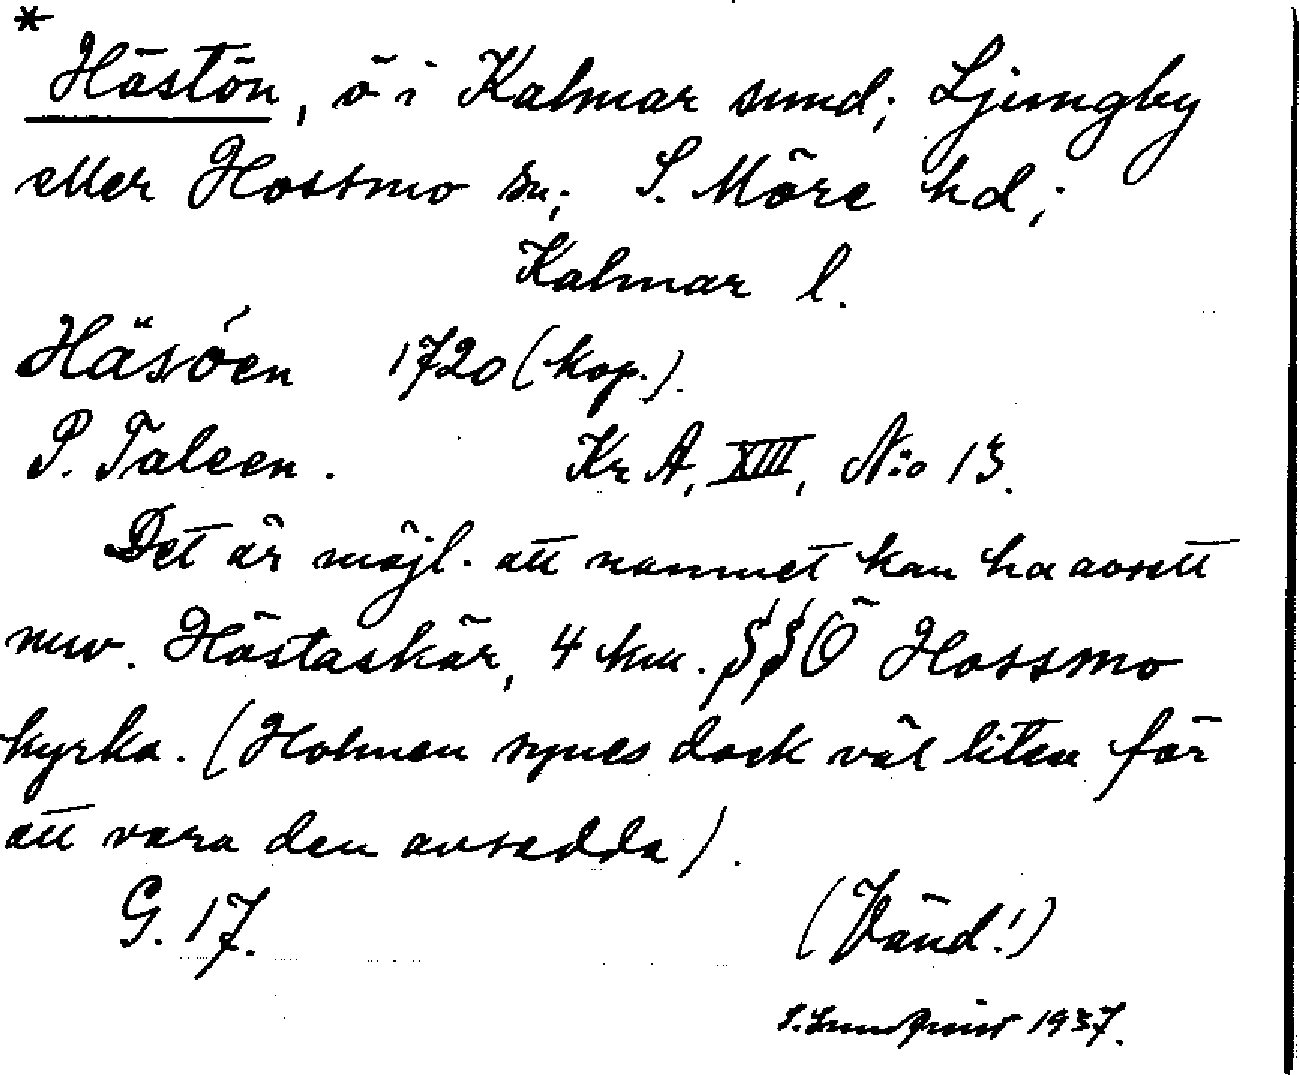 *
Hästön, ö i Kalmar sund; Ljungby
eller Hossmo sn; S. Möre hd;
Kalmar l.
Häsöen 1720 (kop.).
P. Taleen. Kr A, XIII, N:o 13.
Det är möjl. att namnet kan ha avsett
nuv. Hästaskär, 4 km. SSÖ Hossmo
kyrka. (Holmen synes dock väl liten för
att vara den avsedda).
G. 17. (Vänd!)
S. Lundquist 1937.